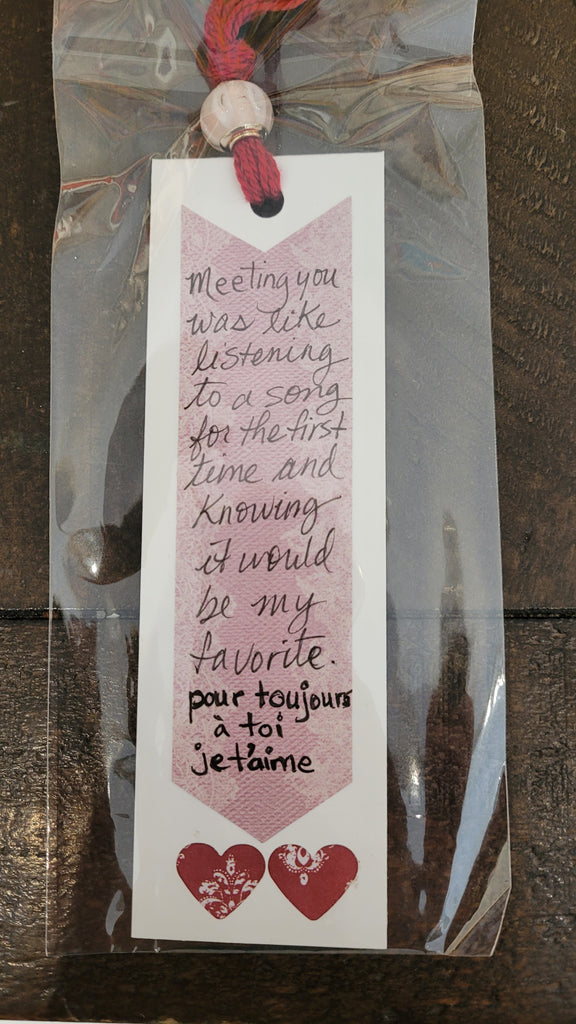 Meeting you
was like
listening
to a song
for the first
time and
knowing
it would
be my
favorite.
pour toujours
à toi
je t'aime